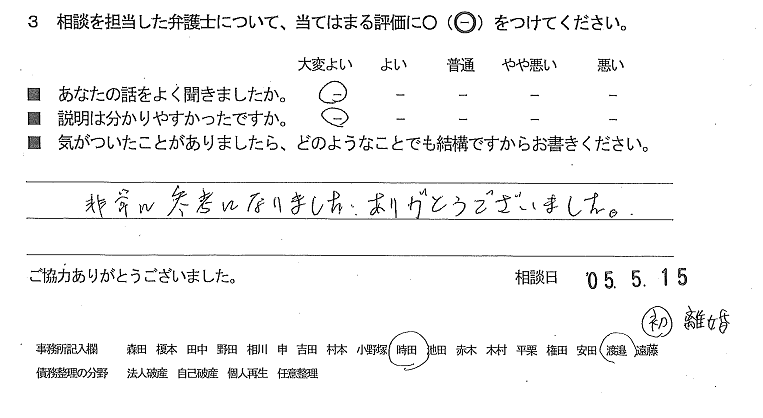 3 相談を担当した弁護士について、当てはまる評価に○（⊖）をつけてください。
大変よい よい 普通 やや悪い 悪い
■ あなたの話をよく聞きましたか。 － － － － －
■ 説明は分かりやすかったですか。 － － － － －
■ 気がついたことがありましたら、どのようなことでも結構ですからお書きください。
非常に参考になりました。ありがとうございました。
ご協力ありがとうございました。 相談日 '05. 5. 15
初 離婚
事務所記入欄 森田 榎本 田中 野田 相川 申 吉田 村本 小野塚 時田 池田 赤木 木村 平栗 権田 安田 渡邉 遠藤
債務整理の分野 法人破産 自己破産 個人再生 任意整理